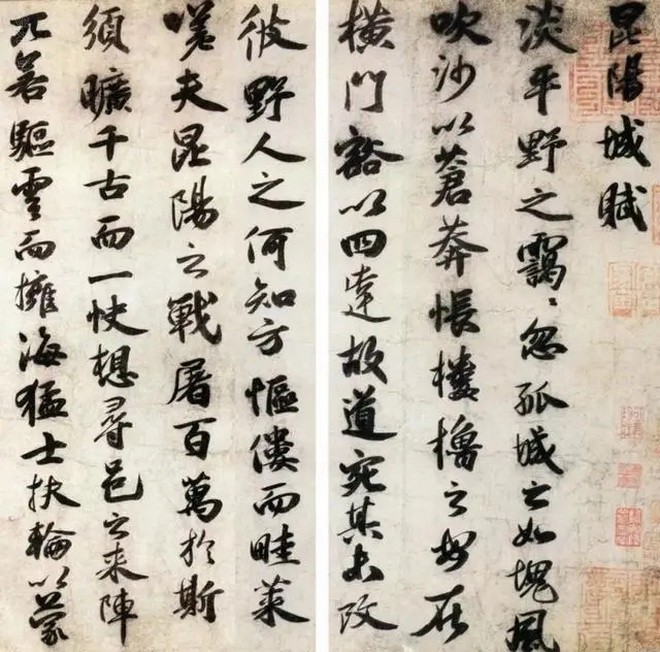 昆陽城賦
淡平野之靄靄忽孤城之如塊風
吹沙以蒼莽悵樓櫓之安在
橫門豁以四達故道宛其未改
彼野人之何知方傴僂而畦菜
嗟夫昆陽之戰屠百萬於斯
須曠千古而一快想尋邑之來陣
兀若驅雲而擁海猛士扶輪以蒙